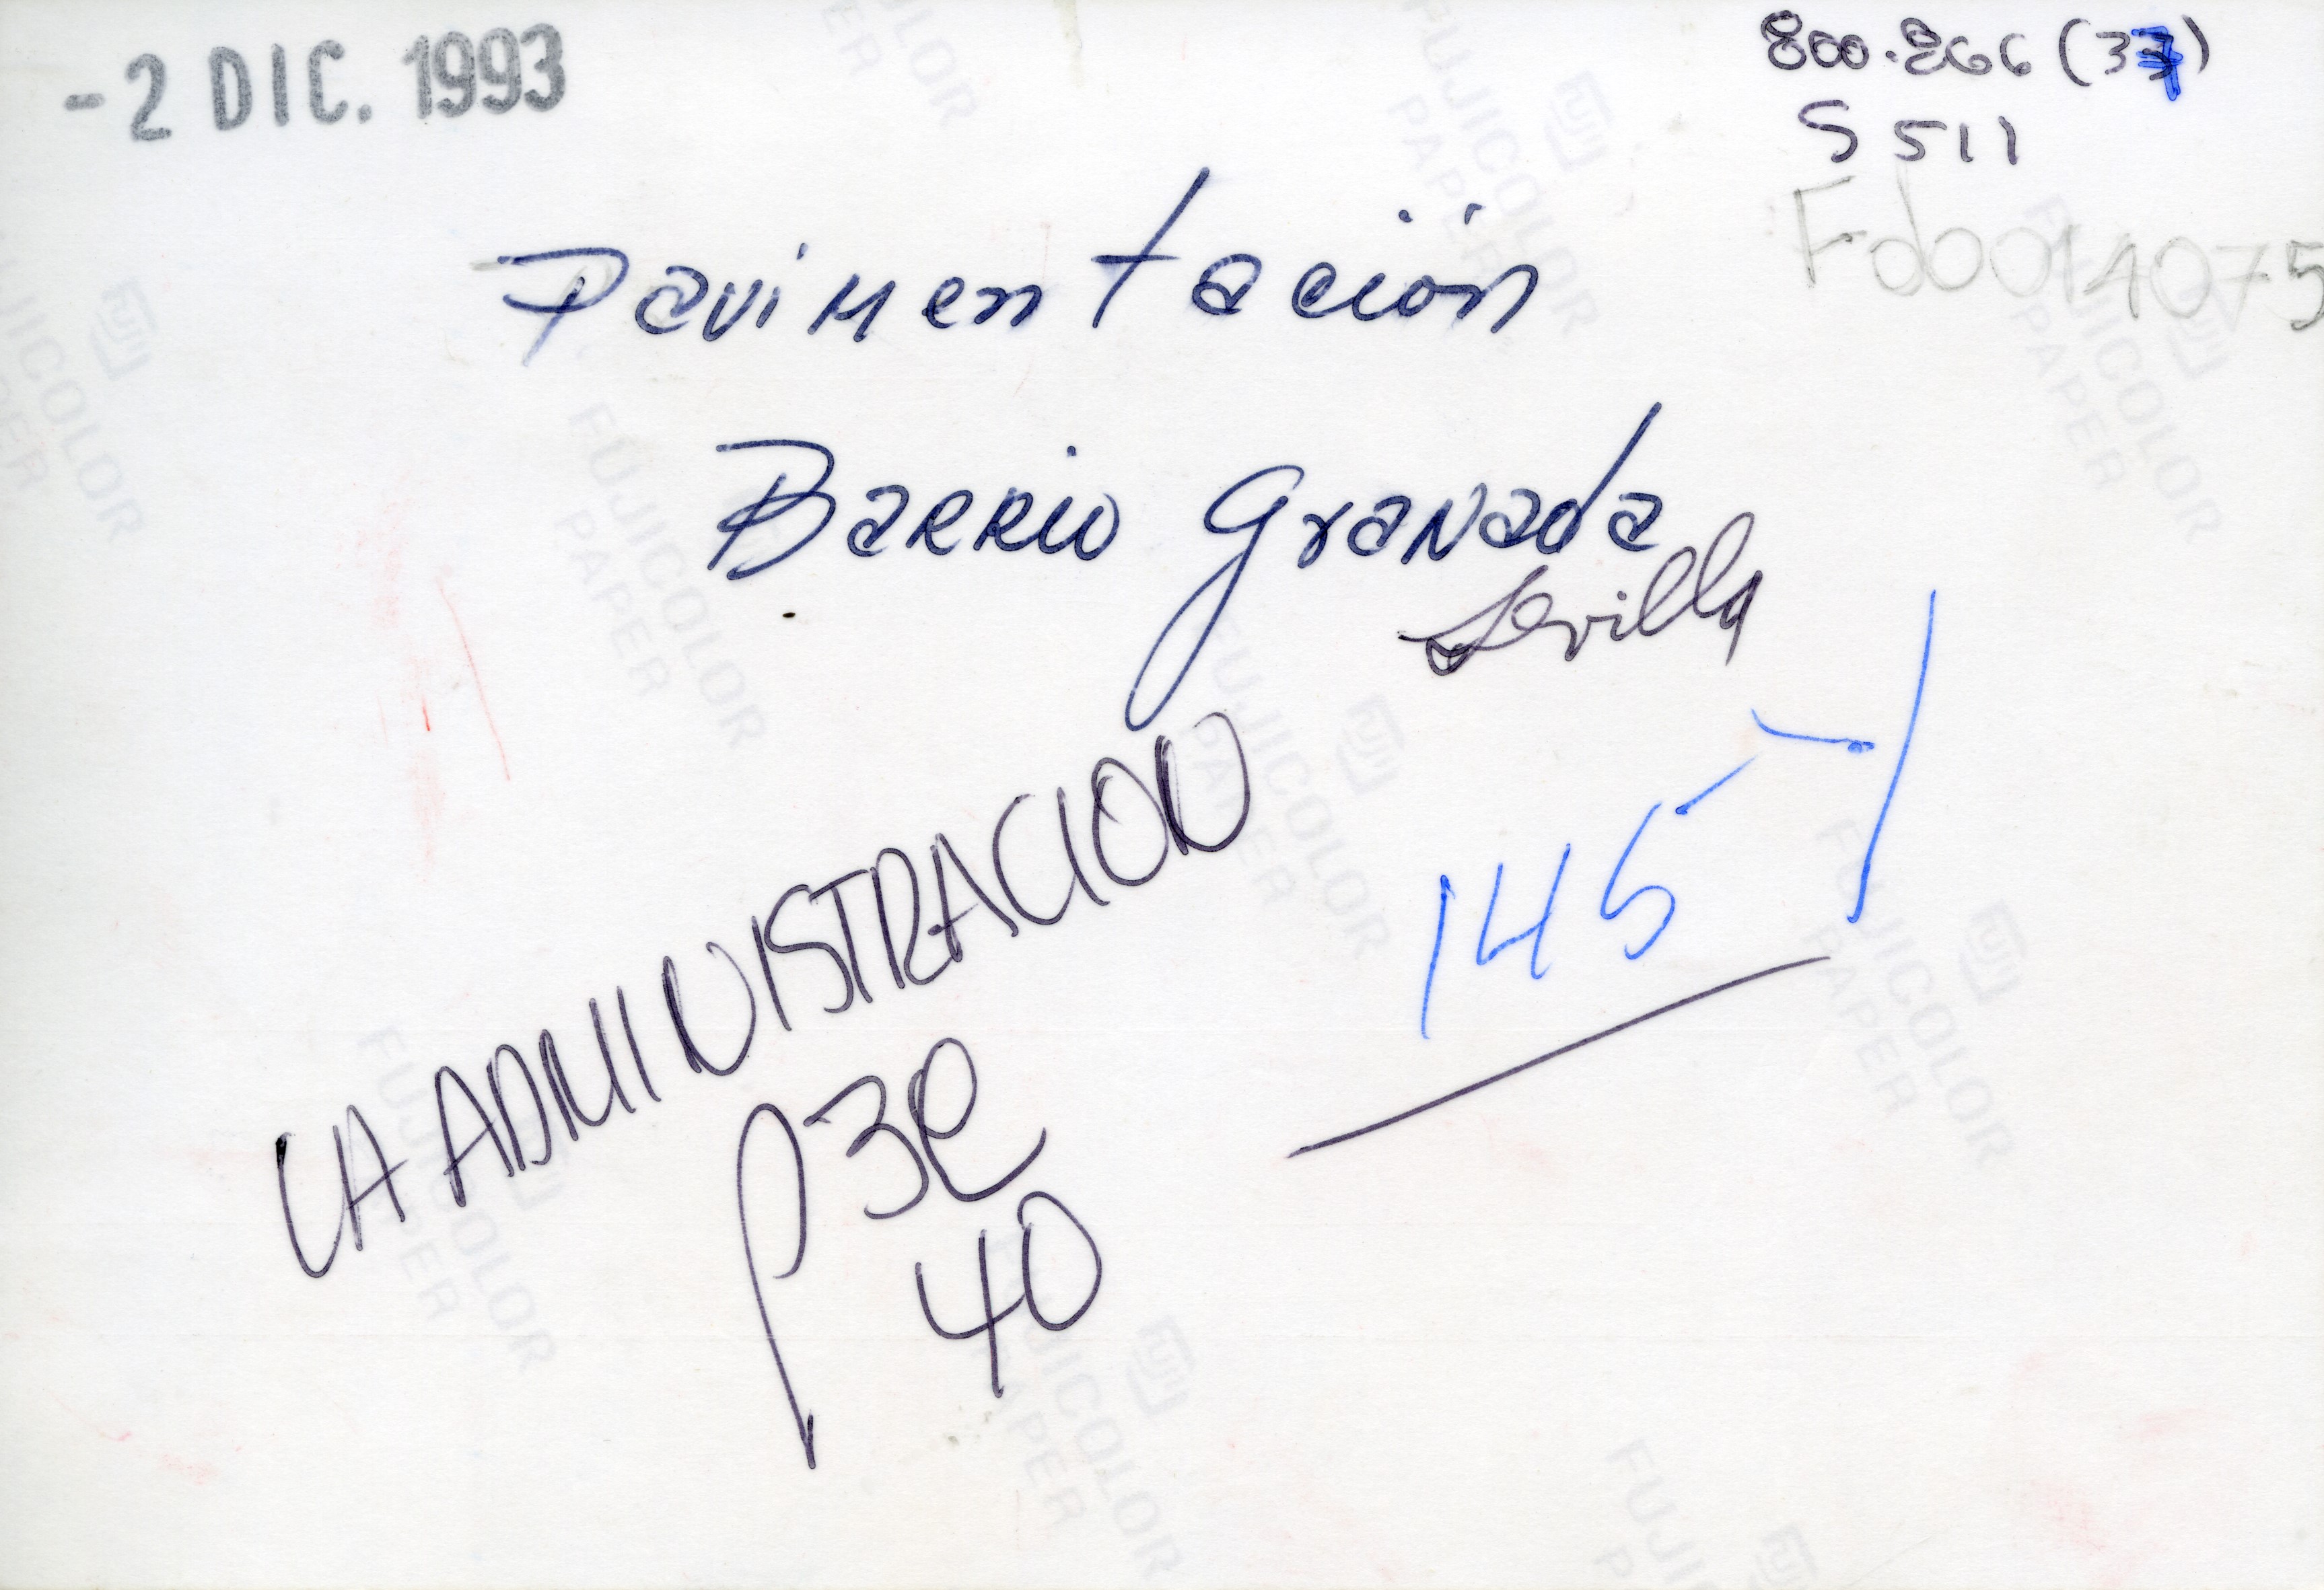 -2 DIC. 1993
800.866 (37)
S 511
Fdb0014075
Pavimentación
Barrio Granada
Sevilla
145
LA ADMINISTRACION
P 3C
40
FUJICOLOR
PAPER